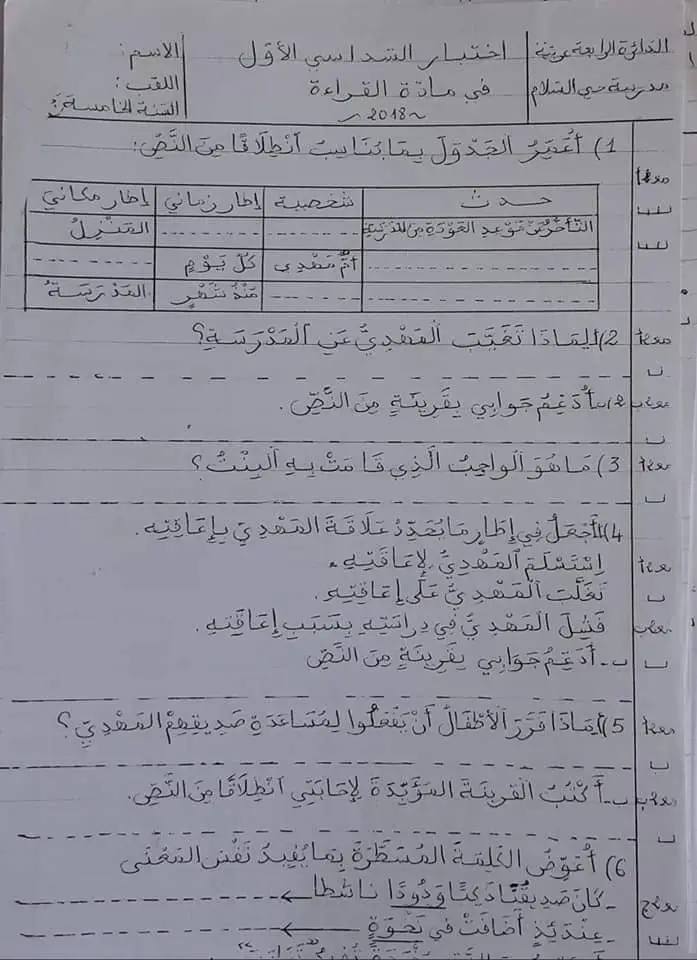 الدائرة الرابعة عربية
مدرسة حي السلام
اختبار السداسي الأوّل
في مادّة القراءة
~ 2018 ~
الاسم:
اللقب:
السّنة الخامسة:
1) أُعَمِّرُ الجَدْوَلَ بِمَا يُنَاسِبُ انْطِلَاقًا مِنَ النَّصِّ:
حدث شخصية إطار زماني إطار مكاني
التَّأَخُّرُ عَنْ مَوْعِدِ العَوْدَةِ مِنَ المَدْرَسَةِ المَنْزِلُ
أُمُّ مَهْدِي كُلَّ يَوْمٍ
مُنْذُ شَهْرٍ المَدْرَسَةُ
مع1أ
2) أ لِمَاذَا تَغَيَّبَ المَهْدِيُّ عَنِ المَدْرَسَةِ؟
مع2أ
2 ب أَدْعَمُ جَوَابِي بِقَرِينَةٍ مِنَ النَّصِّ.
3) مَا هُوَ الوَاجِبُ الَّذِي قَامَتْ بِهِ البِنْتُ؟
مع2أ
4) أ أَجْعَلُ فِي إِطَارٍ مَا يُحَدِّدُ عَلَاقَةَ المَهْدِيِّ بِإِعَاقَتِهِ.
اِسْتَسْلَمَ المَهْدِيُّ لِإِعَاقَتِهِ.
مع2أ
تَغَلَّبَ المَهْدِيُّ عَلَى إِعَاقَتِهِ.
فَشِلَ المَهْدِيُّ فِي دِرَاسَتِهِ بِسَبَبِ إِعَاقَتِهِ.
ب- أَدْعَمُ جَوَابِي بِقَرِينَةٍ مِنَ النَّصِّ
5) أ مَاذَا قَرَّرَ الأَطْفَالُ أَنْ يَفْعَلُوا لِمُسَاعَدَةِ صَدِيقِهِمْ المَهْدِيِّ؟
مع2أ
ب- أَكْتُبُ القَرِينَةَ المُؤَيِّدَةَ لِإِجَابَتِي انْطِلَاقًا مِنَ النَّصِّ.
6) أُعَوِّضُ الكَلِمَةَ المُسَطَّرَةَ بِمَا يُفِيدُ نَفْسَ المَعْنَى
- كَانَ صَدِيقُنَا ذَكِيًّا وَدُودًا نَاشِطًا
- عِنْدَئِذٍ أَضَافَتْ فِي نَخْوَةٍ